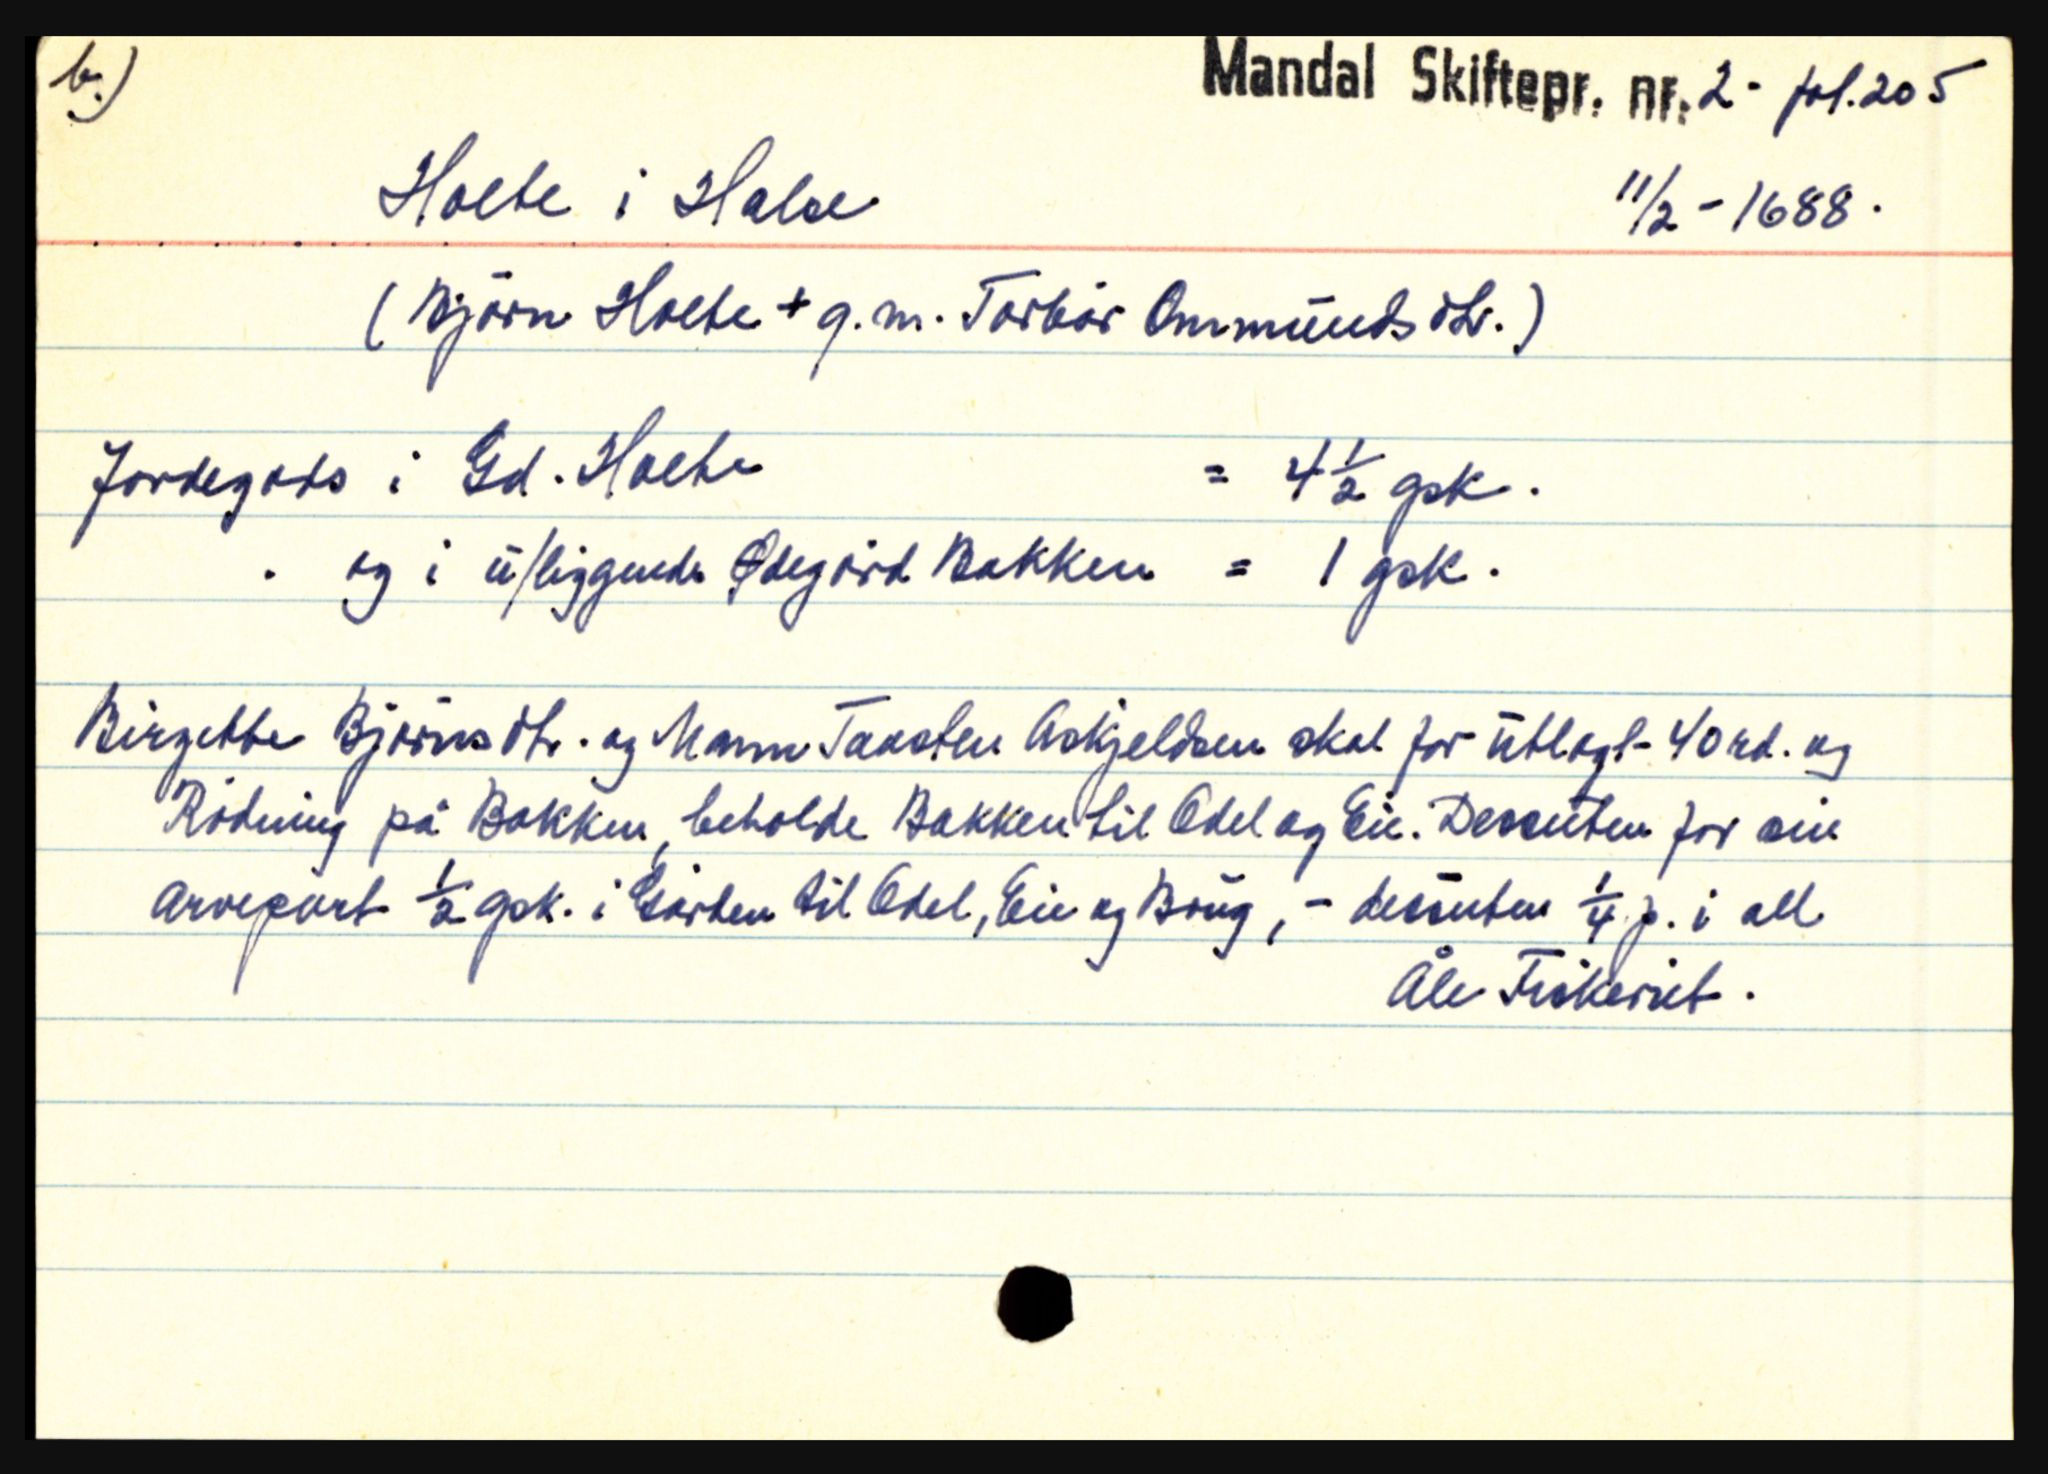 b.)
Mandal Skiftepr. nr. 2 - fol. 205
Holte i Halse
11/2 - 1688.
(Björn Holte + g. m. Torbör Ommunds dtr.)
Jordegods i Gd. Holte = 4 1/2 gsk.
" og i u/liggende Ødegård Bakken = 1 gsk.
Birgitte Björns dtr. og Mann Taasten Askjeldsen skal for utlagt 40 rd. og
Rödning på Bakken, beholde Bakken til Odel og Eie. Dessuten for sin
arvepart 1/2 gsk. i Gården til Odel, Eie og Brug, - desuten 1/4 p. i all
Åle Fiskeriet.